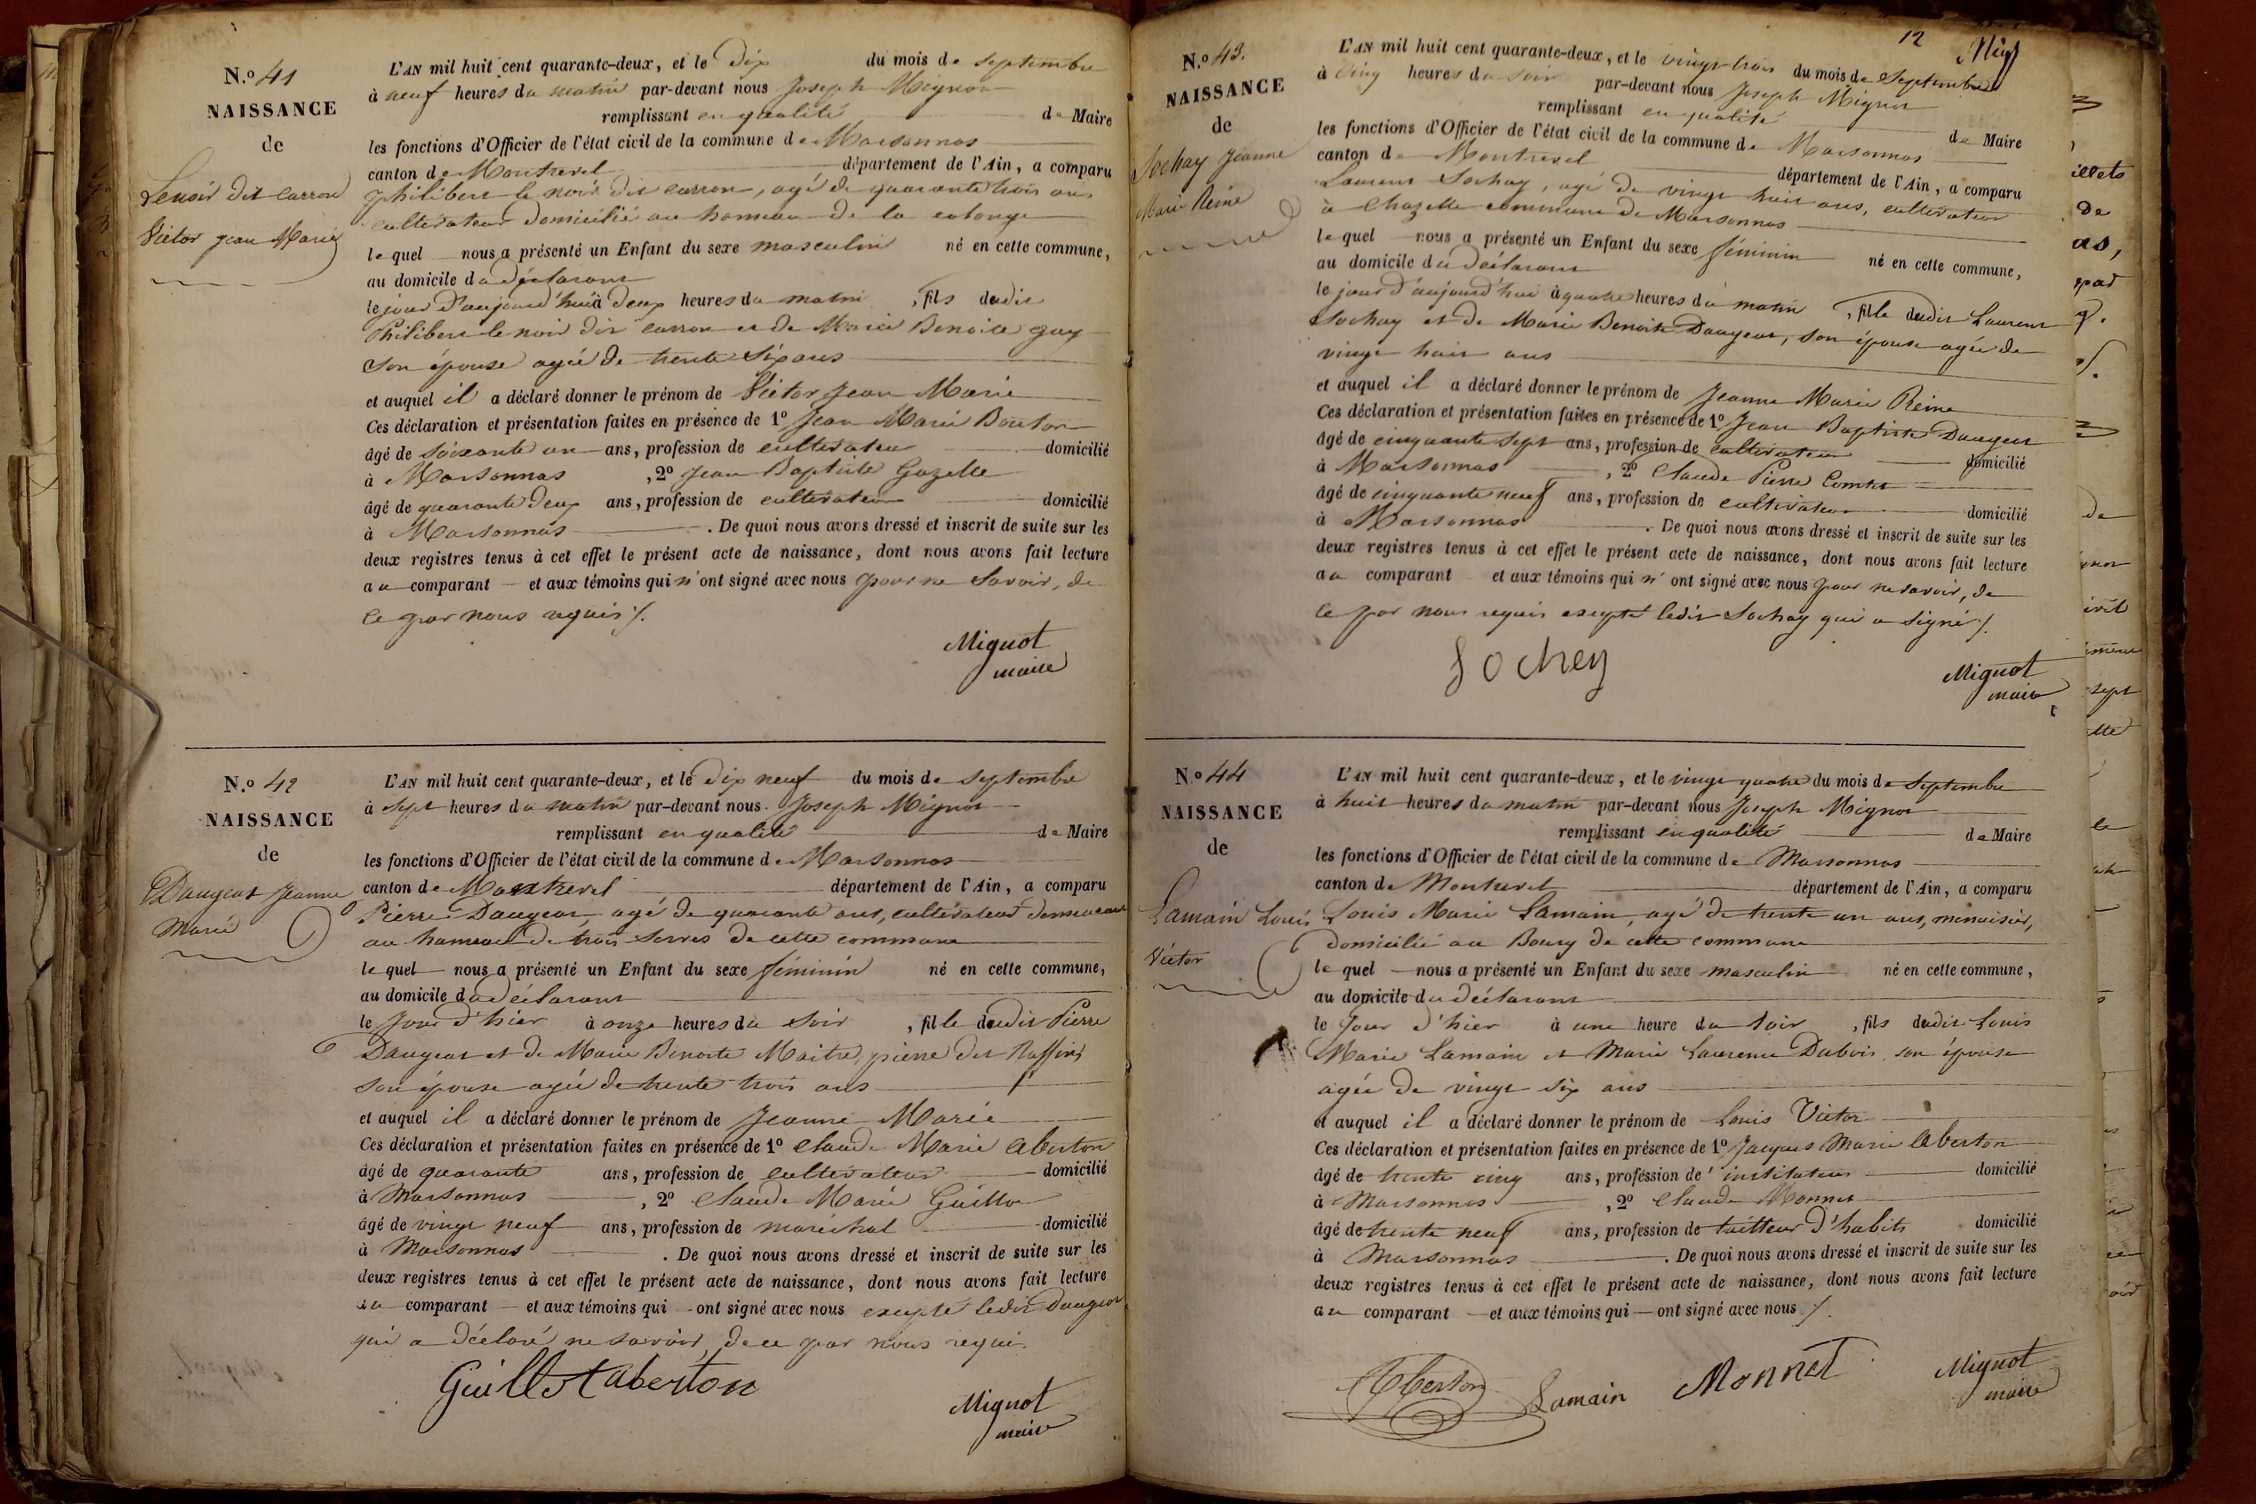 N.o 41
NAISSANCE
de
Lenoir dit Carron
Victor Jean Marie
L'AN mil huit cent quarante-deux, et le dix du mois de septembre
à neuf heures du matin par-devant nous Joseph Mignot
remplissant en qualité de Maire
les fonctions d'Officier de l'état civil de la commune de Marsonnas
canton de Montrevel département de l'Ain, a comparu
philibert le noir dit carron, agé de quarante trois ans
cultivateur domicilié au hameau de la
le quel nous a présenté un Enfant du sexe masculin né en cette commune,
au domicile du déclarant
le jour d'aujourd'hui à deux heures du matin, fils dudit
Philibert le noir dit carron et de Marie Benoite guy
son épouse agée de trente six ans
et auquel il a déclaré donner le prénom de Victor Jean Marie
Ces déclaration et présentation faites en présence de 1o Jean Marie Bouton
âgé de soixante un ans, profession de cultivateur domicilié
à Marsonnas, 2o Jean Baptiste Gazelle
âgé de quarante deux ans, profession de cultivateur domicilié
à Marsonnas. De quoi nous avons dressé et inscrit de suite sur les
deux registres tenus à cet effet le présent acte de naissance, dont nous avons fait lecture
au comparant et aux témoins qui n'ont signé avec nous pour ne savoir, de
ce par nous requis /.
Mignot
maire
N.o 42
NAISSANCE
de
Daugeat Jeanne
Marie
L'AN mil huit cent quarante-deux, et le dix neuf du mois de septembre
à sept heures du matin par-devant nous Joseph Mignot
remplissant en qualité de Maire
les fonctions d'Officier de l'état civil de la commune de Marsonnas
canton de Montrevel département de l'Ain, a comparu
Pierre Daugeat agé de quarante ans, cultivateur demeurant
au hameau de trois serves de cette commune
le quel nous a présenté un Enfant du sexe féminin né en cette commune,
au domicile du déclarant
le jour d'hier à onze heures du soir, fille dudit Pierre
Daugeat et de Marie Benoite Maitre pierre dit Raffin
son épouse agée de trente trois ans
et auquel il a déclaré donner le prénom de Jeanne Marie
Ces déclaration et présentation faites en présence de 1o Claude Marie Aberton
âgé de quarante ans, profession de cultivateur domicilié
à Marsonnas, 2o Claude Marie Guillot
âgé de vingt neuf ans, profession de maréchal domicilié
à Marsonnas. De quoi nous avons dressé et inscrit de suite sur les
deux registres tenus à cet effet le présent acte de naissance, dont nous avons fait lecture
au comparant et aux témoins qui ont signé avec nous excepté ledit Daugeat
qui a déclaré ne savoir, de ce par nous requis.
Guillot aberton
Mignot
maire
12
N.o 43.
NAISSANCE
de
Sochay Jeanne
Marie Reine
L'AN mil huit cent quarante-deux, et le vingt trois du mois de septembre
à cinq heures du soir par-devant nous Joseph Mignot
remplissant en qualité de Maire
les fonctions d'Officier de l'état civil de la commune de Marsonnas
canton de Montrevel département de l'Ain, a comparu
Laurent Sochay, agé de vingt huit ans, cultivateur
à Chazelle commune de Marsonnas
le quel nous a présenté un Enfant du sexe féminin né en cette commune,
au domicile du déclarant
le jour d'aujourd'hui à quatre heures du matin, fille dudit Laurent
Sochay et de Marie Benoite Daugeat, son épouse agée de
vingt huit ans
et auquel il a déclaré donner le prénom de Jeanne Marie Reine
Ces déclaration et présentation faites en présence de 1o Jean Baptiste Daugeat
âgé de cinquante sept ans, profession de cultivateur domicilié
à Marsonnas, 2o Claude Pierre Comte
âgé de cinquante neuf ans, profession de cultivateur domicilié
à Marsonnas. De quoi nous avons dressé et inscrit de suite sur les
deux registres tenus à cet effet le présent acte de naissance, dont nous avons fait lecture
au comparant et aux témoins qui n'ont signé avec nous pour ne savoir, de
ce par nous requis excepté ledit Sochay qui a signé /.
Sochey
Mignot
maire
N.o 44
NAISSANCE
de
Lamain Louis
Victor
L'AN mil huit cent quarante-deux, et le vingt quatre du mois de septembre
à huit heures du matin par-devant nous Joseph Mignot
remplissant en qualité de Maire
les fonctions d'Officier de l'état civil de la commune de Marsonnas
canton de Montrevel département de l'Ain, a comparu
Louis Marie Lamain, agé de trente un ans, menuisier,
domicilié au Bourg de cette commune
le quel nous a présenté un Enfant du sexe masculin né en cette commune,
au domicile du déclarant
le jour d'hier à une heure du soir, fils dudit Louis
Marie Lamain et Marie Laurence Dubois son épouse
agée de vingt six ans
et auquel il a déclaré donner le prénom de Louis Victor
Ces déclaration et présentation faites en présence de 1o Jacques Marie Aberton
âgé de trente cinq ans, profession d'instituteur domicilié
à Marsonnas, 2o Claude Monnet
âgé de trente neuf ans, profession de tailleur d'habits domicilié
à Marsonnas. De quoi nous avons dressé et inscrit de suite sur les
deux registres tenus à cet effet le présent acte de naissance, dont nous avons fait lecture
au comparant et aux témoins qui ont signé avec nous /.
Aberton Lamain Monnet
Mignot
maire